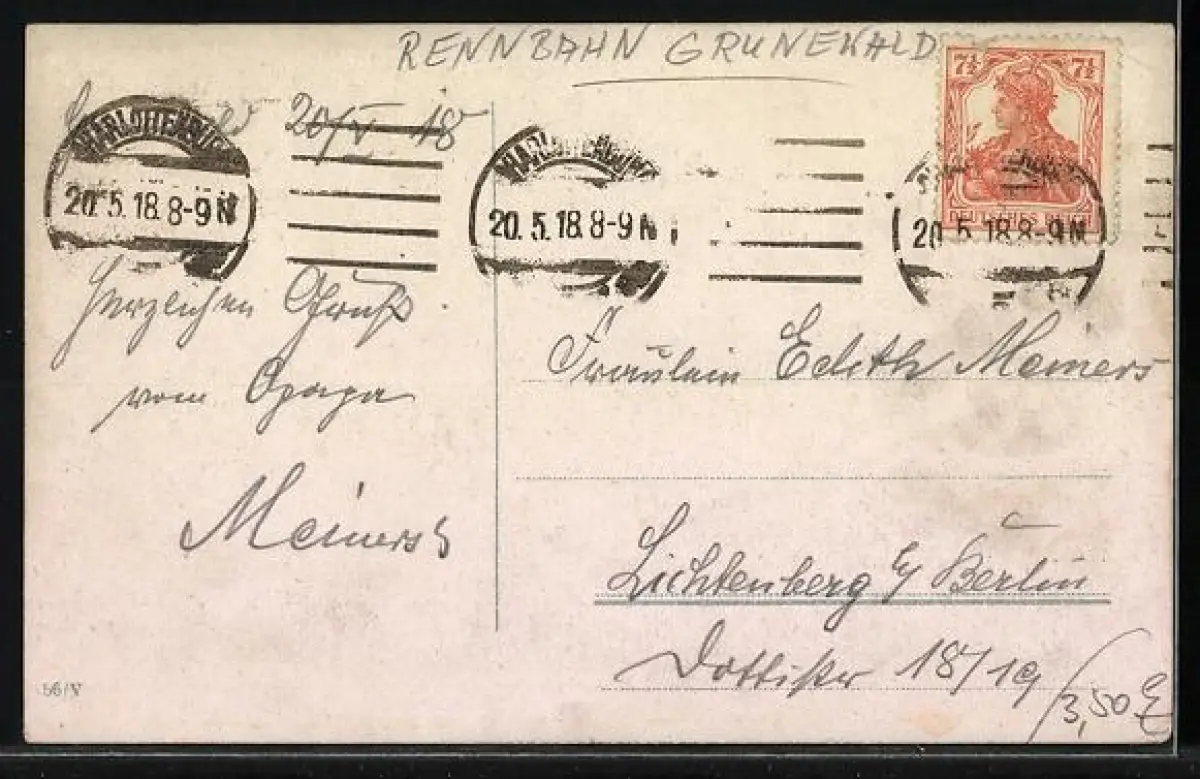 RENNBAHN GRUNEWALD
7½ 7½
DEUTSCHES REICH
20/V 18
CHARLOTTENBURG
20.5.18.8-9N
CHARLOTTENBURG
20.5.18.8-9N
20.5.18.8-9N
Herzlichen Gruß
vom Opapa
Meiners
Fräulein Edith Meiners
Lichtenberg b/ Berlin
Dottistr 18/19
3,50
56/V